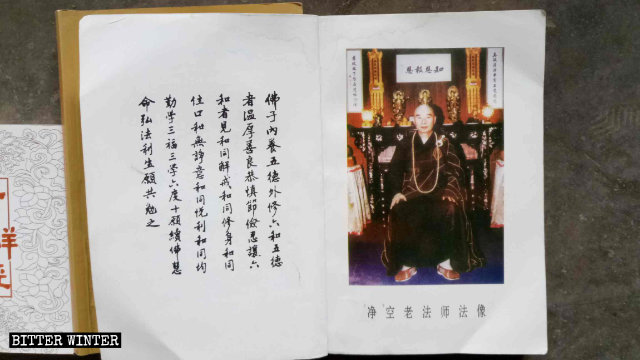 佛子內養五德外修六和五德
者溫厚善良恭慎節儉忍讓六
和者見和同解戒和同修身和同
住口和無諍意和同悅利和同均
勤學三福三學六度十願續佛慧
命弘法利生願共勉之
知恩報恩
净空老法師法像
祥
BITTER WINTER